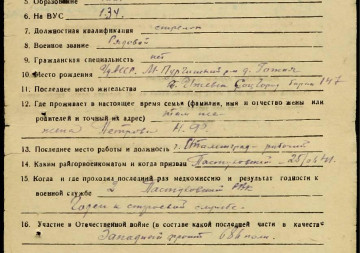 5. Образование
6. На ВУС 134.
7. Должностная квалификация стрелок
8. Военное звание Рядовой
9. Гражданская специальность нет
10. Место рождения УАССР. М-Пургинский р-н д.
11. Последнее место жительства г. Ижевск Соцгород 147
12. Где проживает в настоящее время семья (фамилия, имя и отчество жены или
родителей и точный их адрес) там же
жена Петрова Н. Ф.
13. Последнее место работы и должность рабочий
14. Каким райгорвоенкоматом и когда призван Пастуховский
15. Когда и где проходил последний раз медкомиссию и результат годности к
военной службе Пастуховский РВК
Годен к строевой службе
16. Участие в Отечественной войне (в составе какой последней части в качестве
Западный фронт 688 полк.